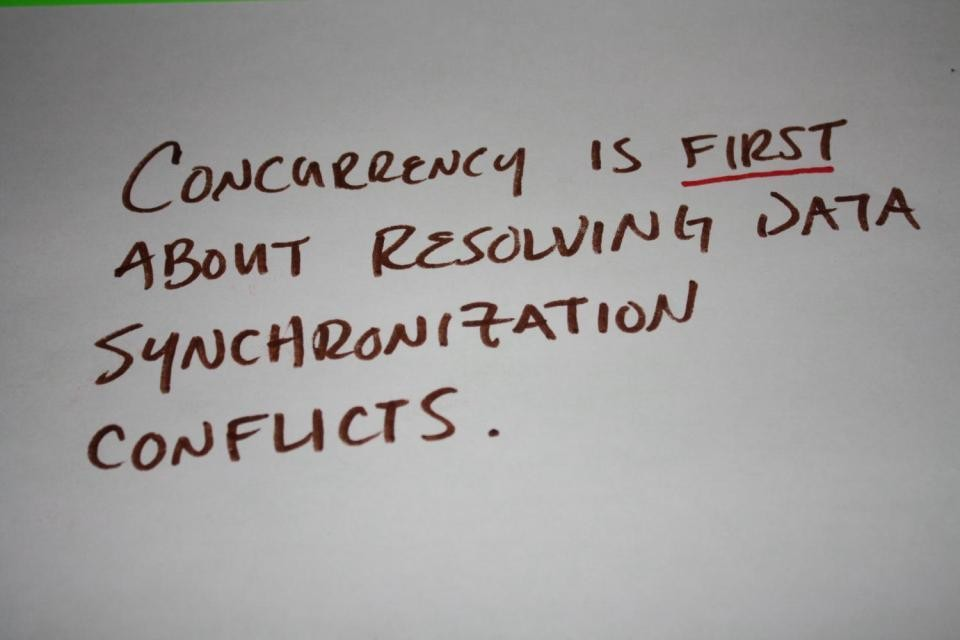 CONCURRENCY IS FIRST
ABOUT RESOLVING DATA
SYNCHRONIZATION
CONFLICTS.